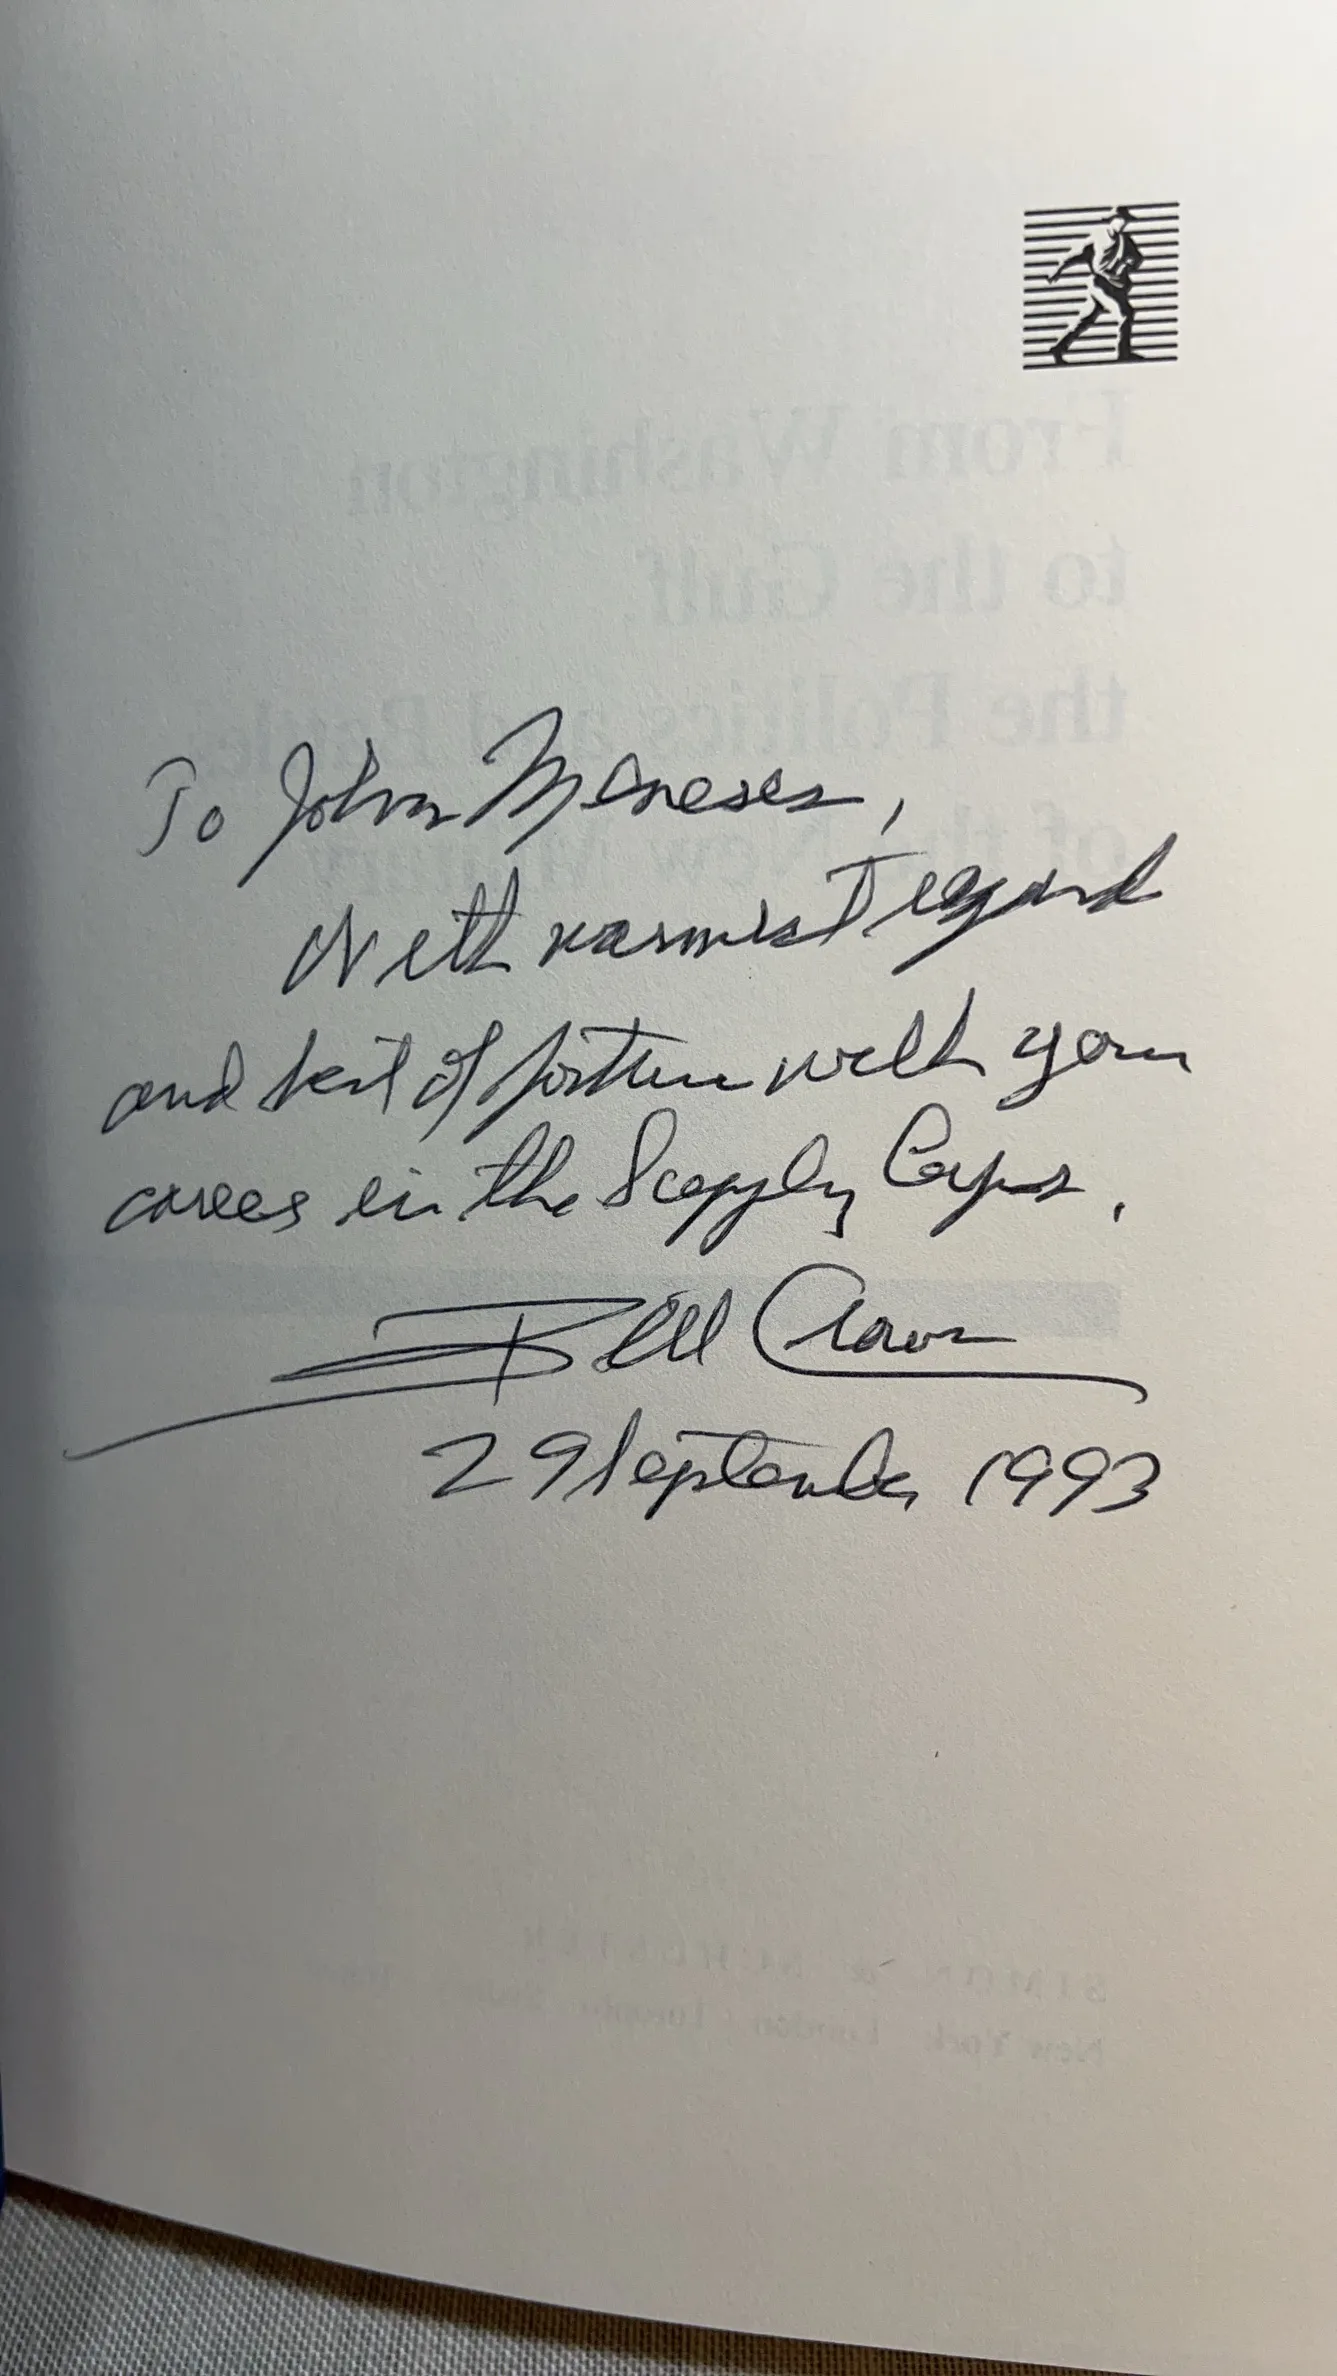 To John Meneses,
With warmest regard
and best of fortune with your
career in the Supply Corps.
Bill Crowe
29 September 1993
From Washington
to the Gulf,
the Politics and Battles
of the New Military
SIMON & SCHUSTER
New York London Toronto Sydney Tokyo